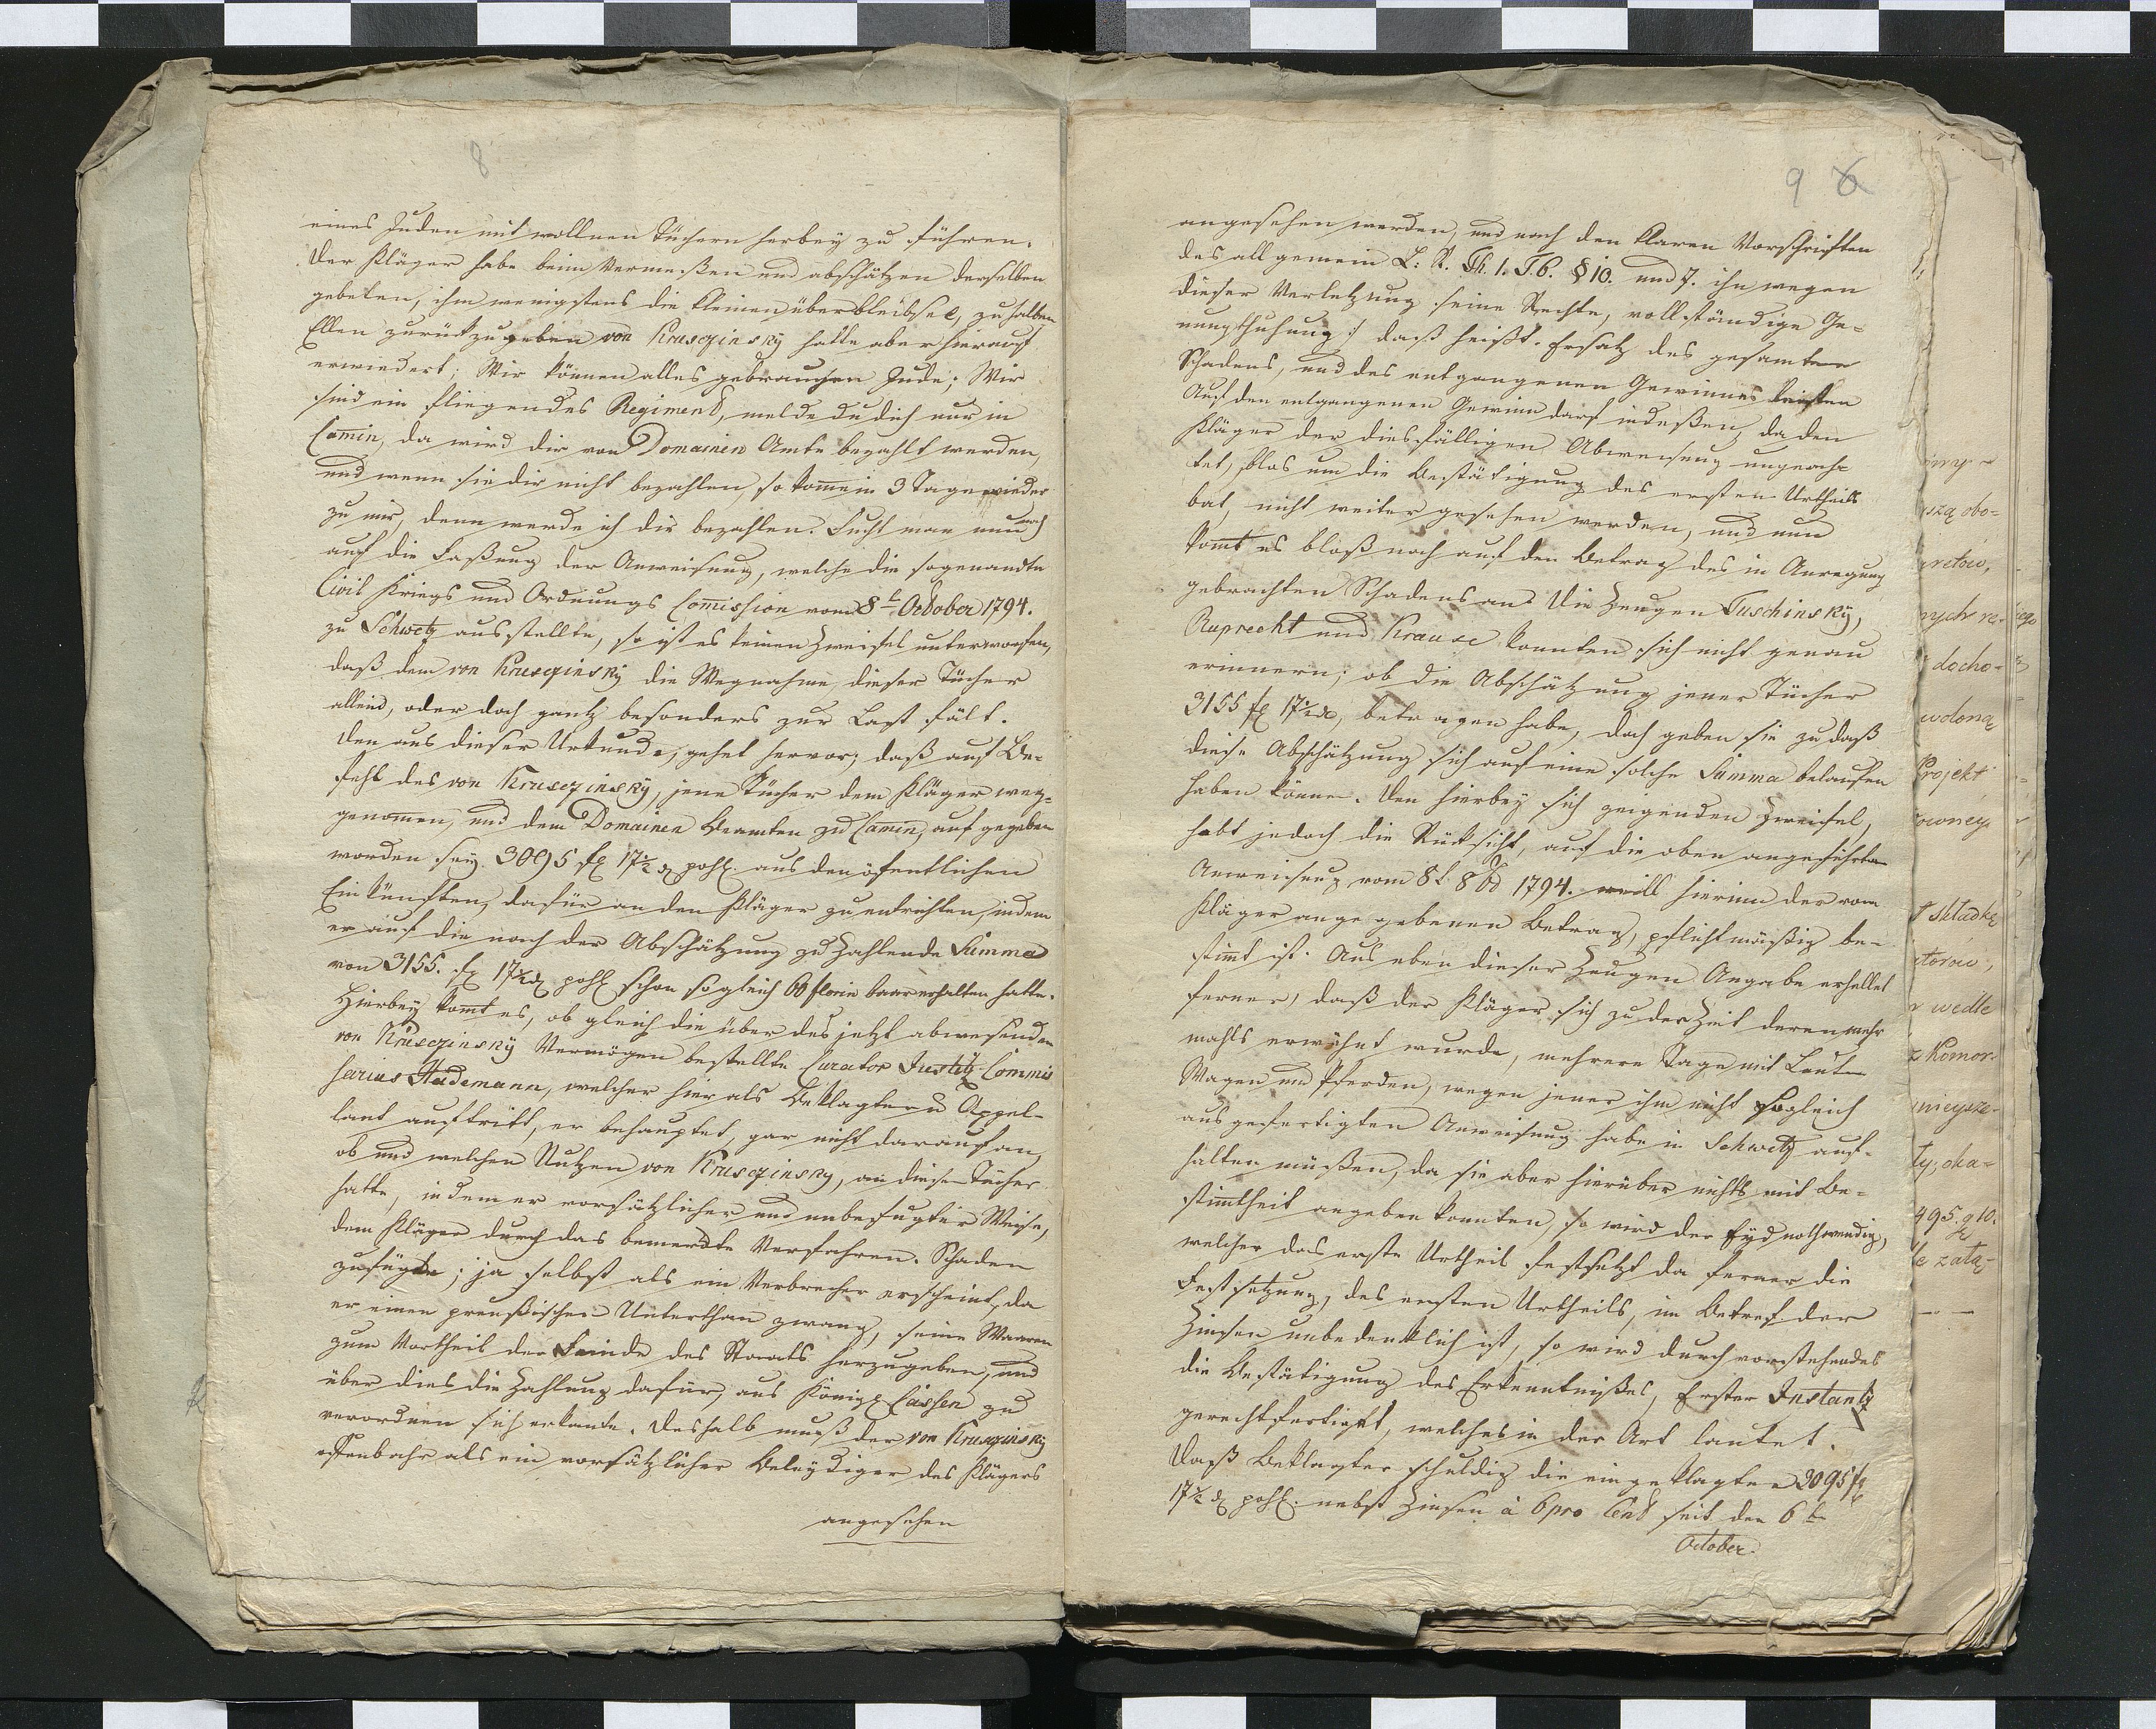 8
eines Juden mit wollnen Tüchern herbey zu führen.
Der Kläger habe beim Vermeßen und abschätzen derselben
gebeten, ihm wenigstens die kleinen überbleibsel, zu halben
Ellen zurückzugeben von Krusczinsky hatte aber hierauf
erwiedert; Wir können alles gebrauchen Jude; Wir
sind ein fliegendes Regiment, melde du dich nur in
Camin, da wird dir von Domainen Amte bezahlt werden,
und wenn sie dir nicht bezahlen, so kome in 3 Tage wieder
zu mir, denn werde ich dir bezahlen. Sieht man nun noch
auf die Faßung der Anweisung, welche die sogenandte
Civil Kriegs und Ordnungs Comission vom 8t October 1794.
zu Schwetz ausstellte, so ist es keinen Zweifel unterworfen,
daß dem von Krusczinsky die Wegnahme dieser Tücher
allein, oder doch gantz besonders zur Last fält.
Den aus dieser Urkunde, gehet hervor; daß auf Be-
fehl des von Krusczinsky, jene Tücher dem Kläger weg-
genomen, und dem Domainen Beamten zu Camin, auf gegeben
worden sey. 3095 f 17½ g pohl. aus den öfentlichen
Einkünften, dafür an den Kläger zu entrichten, indem
er auf die nach der Abschätzung zu Zahlende Summe
von 3155. f 17½ g pohl schon sogleich 60 florin baar erhalten hatte.
Hierbey komt es, ob gleich die über des jetzt abwesenden
von Krusczinsky Vermögen bestellte Curator Justitz-Commis
sarius Hademann, welcher hier als Beklagter u Appel-
lant auftritt, er behauptet, gar nicht darauf an,
ob und welchen Nutzen von Krusczinsky, an diesen Tücher
hatte, indem er vorsätzlicher und unbefugter Weise,
dem Kläger durch das bemerckte Verfahren. Schaden
zufügte; ja selbst als ein Verbrecher erscheint, da
er einen preußischen Unterthan zwang, seine Waaren
zum Vortheil der Feinde des Staats herzugeben, und
über dies die Zahlung dafür, aus Königl Cassen zu
verordnen sich erkante. Deshalb muß der von Krusczinsky
offenbahr als ein vorsätzlicher Beleydiger des Klägers
angesehen
9 6
angesehen werden, und nach den klaren Vorschriften
des allgemein L: R. Th. 1. T. 6. § 10. und 7. ihn wegen
dieser Verletzung seine Rechte, vollständige Ge-
nungthuhung: daß heißt. Ersatz des gesamten
Schadens, und des entgangenen Gewinnes leisten
Auf den entgangenen Gewinn darf indeßen, da den
Kläger der diesfälligen Abweisung ungeach-
tet, blos um die Bestätigung des ersten Urtheils
bat, nicht weiter gesehen werden, und nun
komt es bloß noch auf den Betrag des in Anregung
gebrachten Schadens an. Die Zeugen Tuschinsky,
Ruprecht und Krause konnten sich nicht genau
erinnern; ob die Abschätzung jener Tücher
3155 f 17½ g, betragen habe, doch geben sie zu daß
diese Abschätzung sich auf eine solche Summa belaufen
haben könne. Den hierbey sich zeigenden Zweifel,
hebt jedoch die Rücksicht, auf die oben angeführte
Anweisung vom 8t 8br 1794. weill hierinn der vom
Kläger angegebenen Betrag, pflichtmäßig be-
stimt ist. Aus eben dieser Zeugen Angabe erhellet
ferner, daß der Kläger sich zu der Zeit deren mehr
mahls erwähnt wurde, mehrere Tage mit Leuten
Wagen und Pferden, wegen jener ihm nicht sogleich
ausgefertigten Anweisung habe in Schwetz auf-
halten müßen, da sie aber hierüber nichts mit Be-
stimtheit angeben konnten, so wird der Eyd nothwendig,
welcher das erste Urtheil festsetzt da ferner die
Festsetzung, des ersten Urtheils, im Betref der
Zinsen unbedenklich ist, so wird durch vorstehendes
die Bestätigung des Erkenntnißes, Erster Instantz
gerechtfertigt, welches in der Art lautet.
Daß Beklagter schuldig die eingeklagten 3095 f
17½ g pohl. nebst Zinsen à 6 pro Cent seit den 6t
October.
szą obo-
retów,
nych re-
docho-
wdoną
Projekt
składkę
ktorów,
wedle
z Komor
ty, oka-
495. g 10.